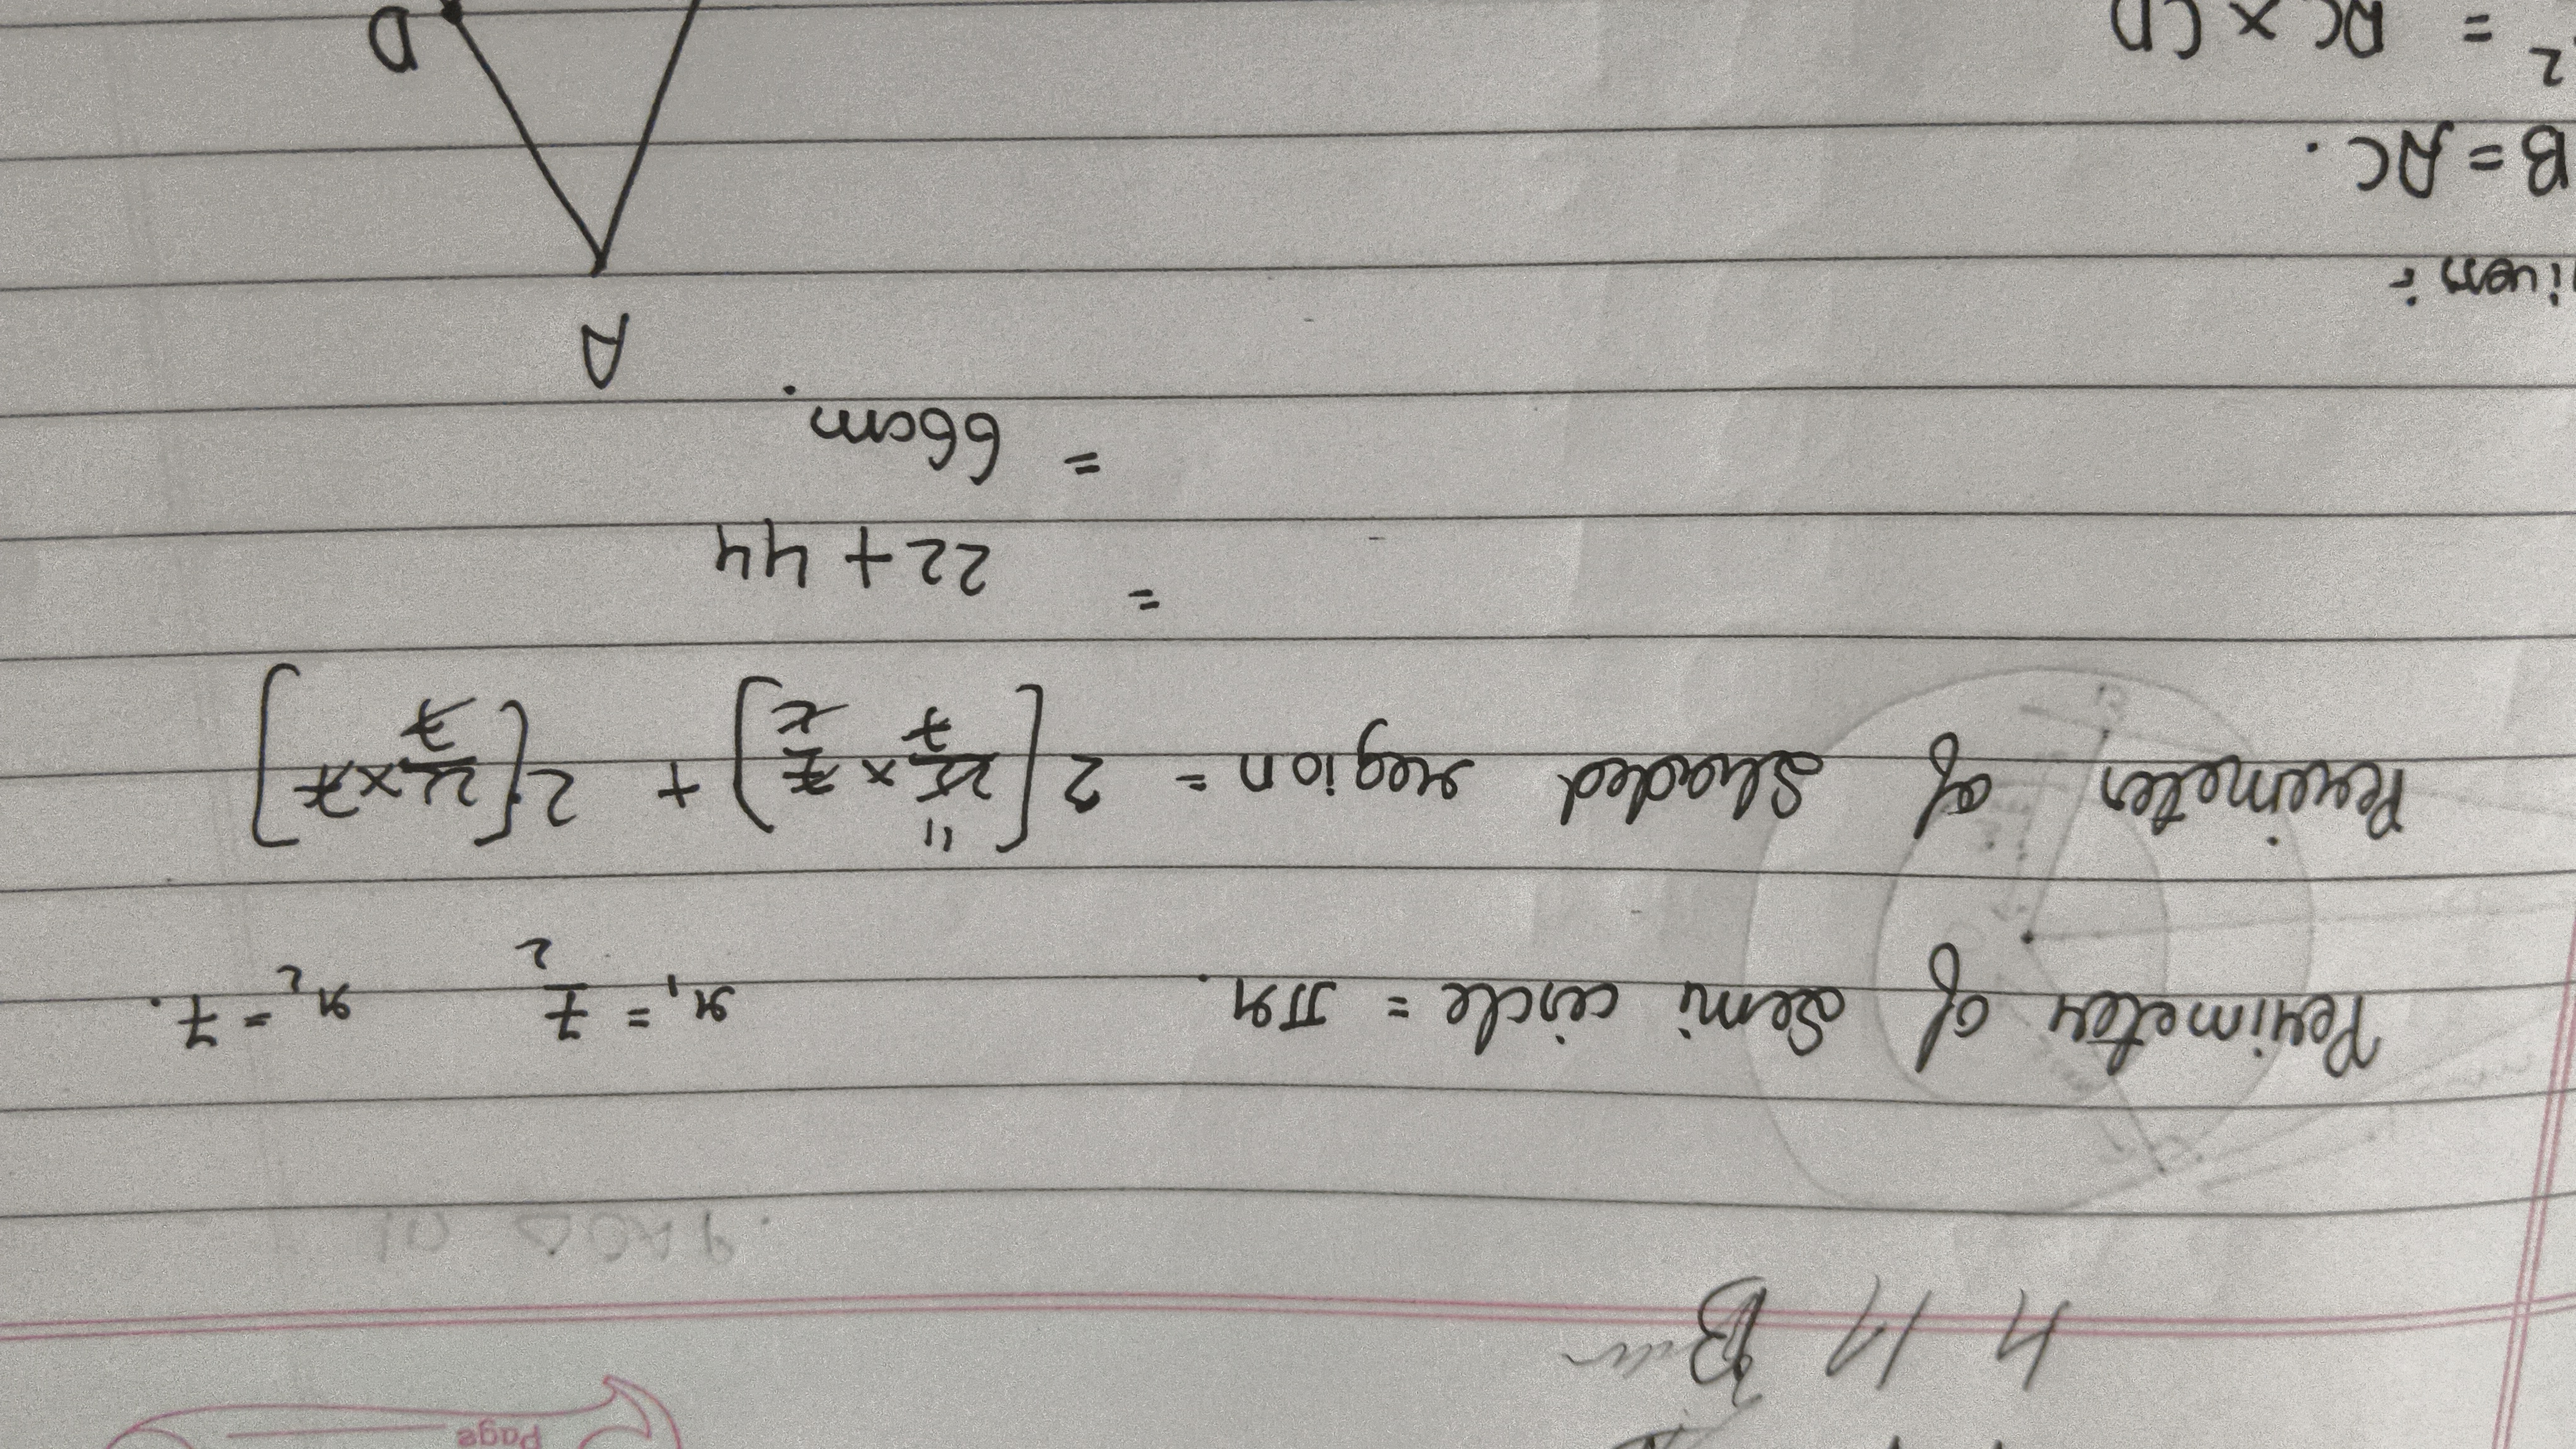 Page
Perimeter of semi circle = πr. r₁ = 7/2 r₂ = 7.
Perimeter of shaded region = 2[22/7 × 7/2] + 2[22/7 × 7]
11
= 22 + 44
= 66cm.
A
iven :
B = AC.
D
2 = BC × CD